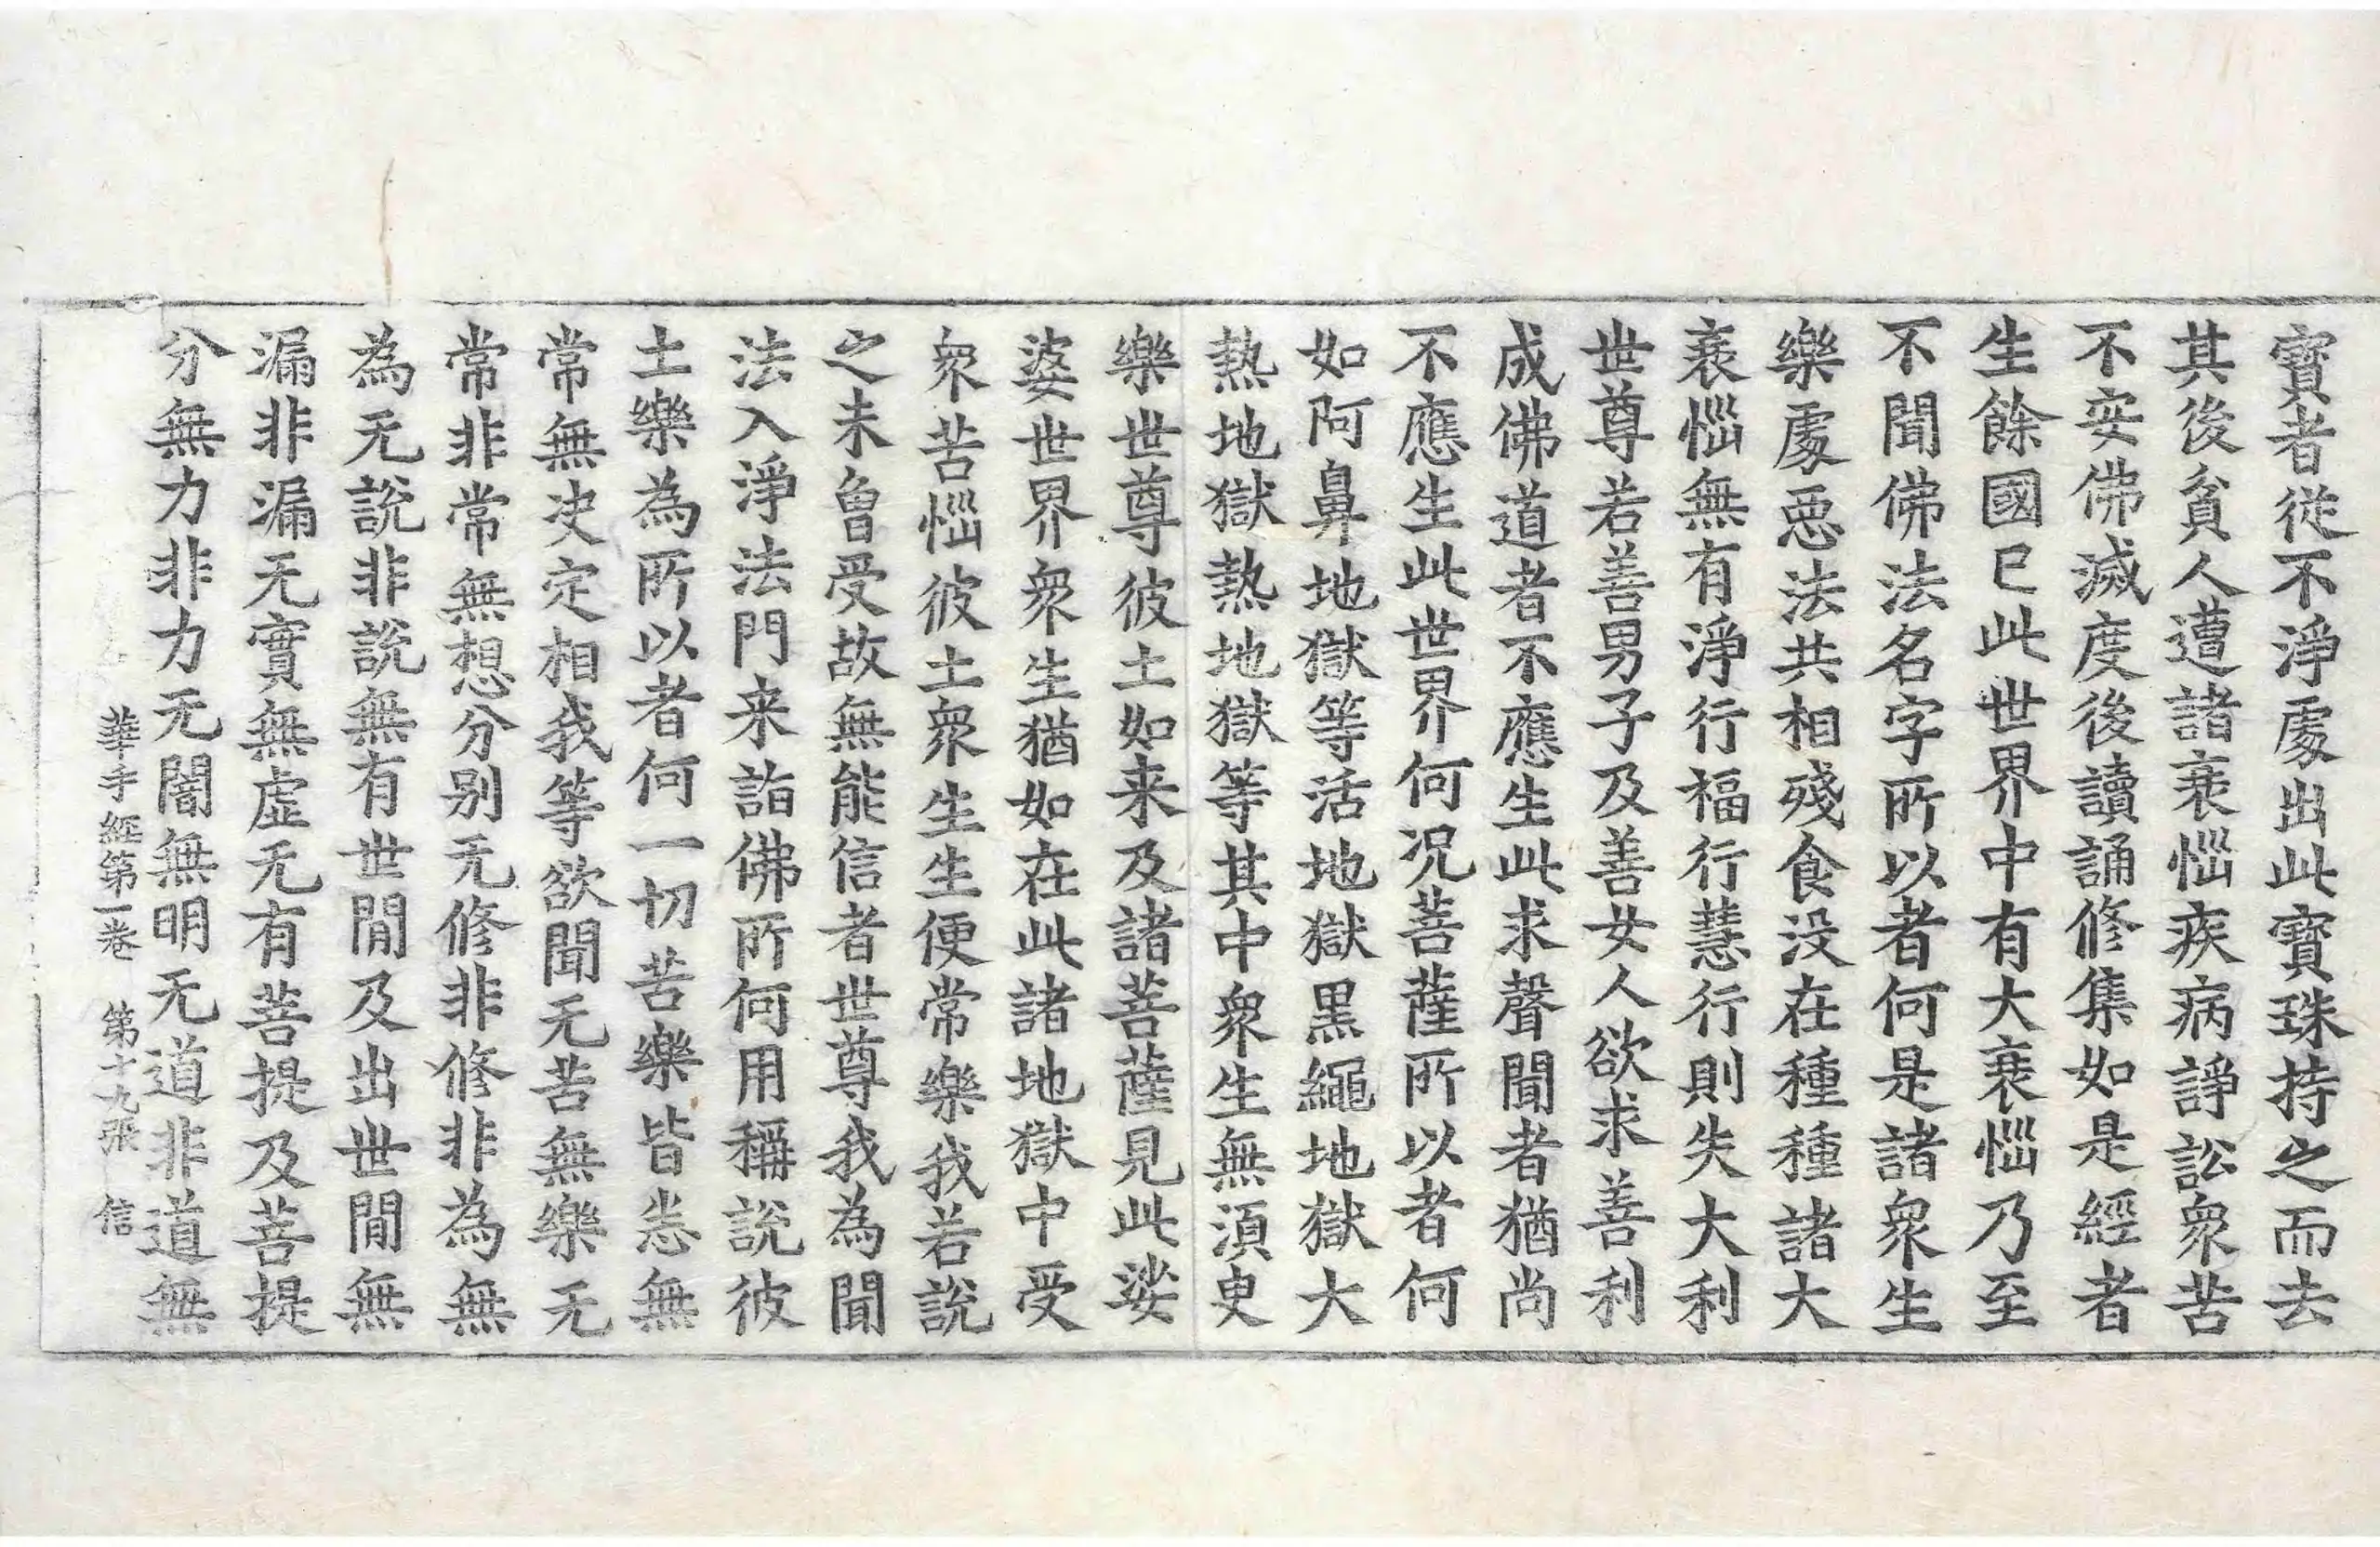 寶者從不淨處出此寶珠持之而去
其後貧人遭諸衰惱疾病諍訟衆苦
不安佛滅度後讀誦修集如是經者
生餘國已此世界中有大衰惱乃至
不聞佛法名字所以者何是諸衆生
樂處惡法共相殘食没在種種諸大
衰惱無有淨行行福行行慧行則失大利
世尊若善男子及善女人欲求善利
成佛道者不應生此求聲聞者猶尚
不應生此世界何況菩薩所以者何
如阿鼻地獄等活地獄黒繩地獄大
熱地獄熱地獄等其中衆生無須臾
樂世尊彼土如来及諸菩薩見此娑
婆世界衆生猶如在此諸地獄中受
衆苦惱彼土衆生生便常樂我若說
之未曾受故無能信者世尊我為聞
法入淨法門来詣佛所何用稱說彼
土樂為所以者何一切苦樂皆悉無
常無决定相我等欲聞无苦無樂无
常非常無想分别无修非修非為無
為无說非說無有世間及出世間無
漏非漏无實無虛无有菩提及菩提
分無力非力无闇無明无道非道無
華手經第一卷 第十九張 信